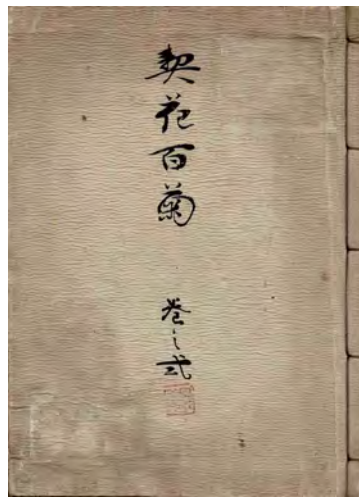 契花百菊
巻之弐